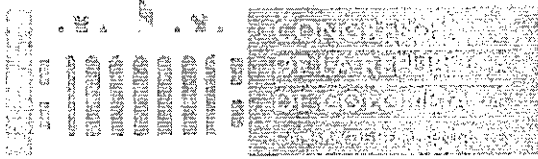 CONGRESO
DE LA REPÚBLICA
DE COLOMBIA